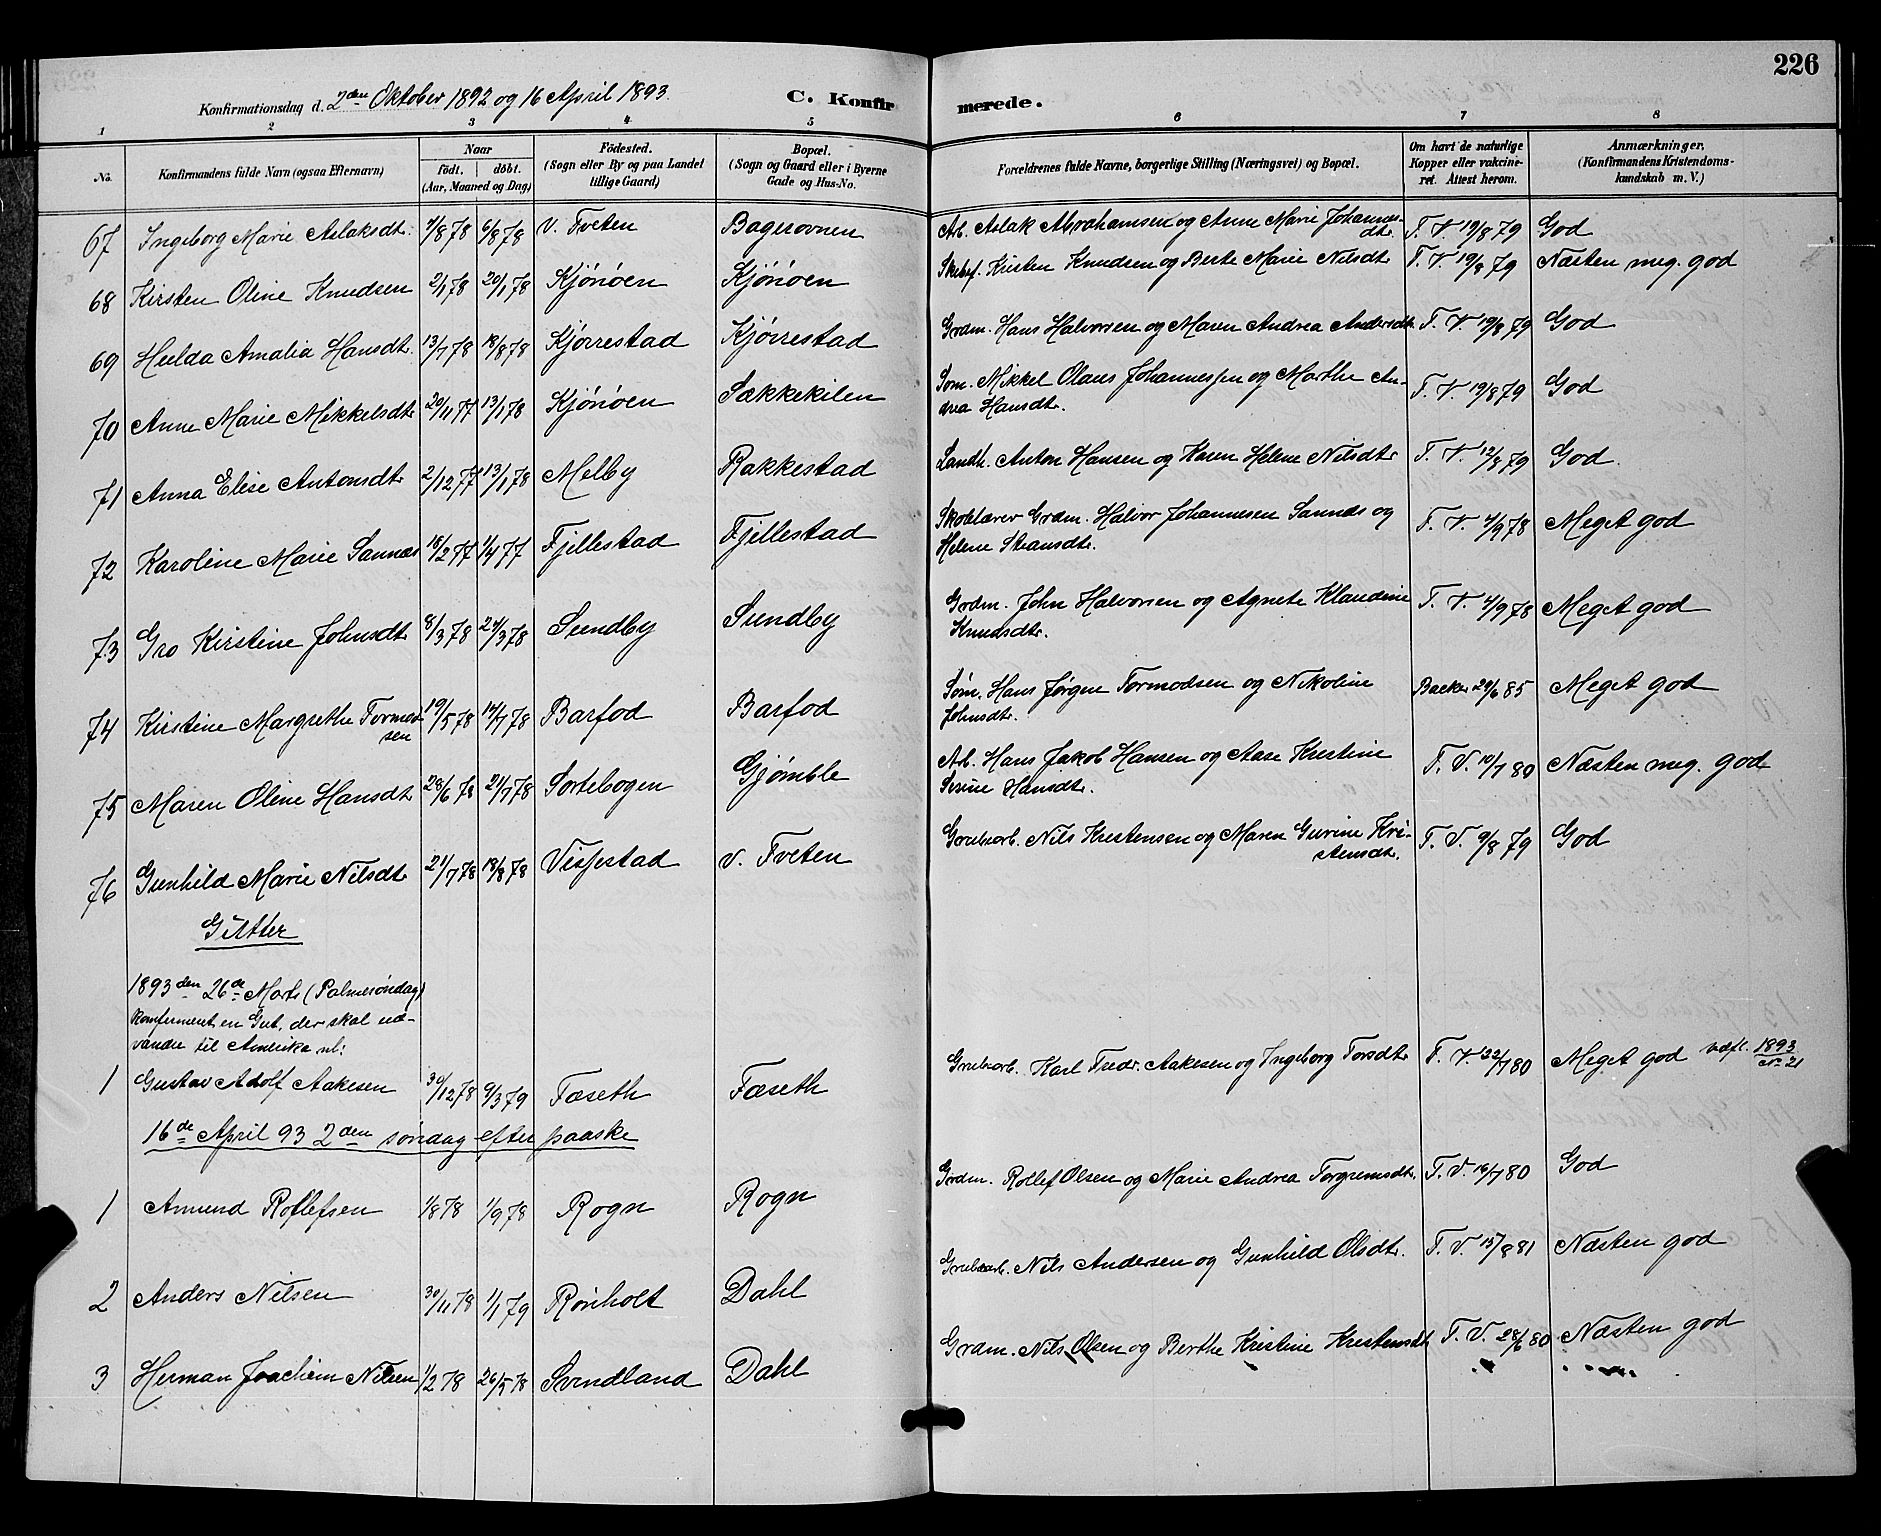 226
Konfirmationsdag d. 2den Oktober 1892 og 16 April 1893. C. Konfirmerede.
1 2 3 4 5 6 7 8
No. Konfirmandens fulde Navn (ogsaa Efternavn) Naar födt. döbt. (Aar, Maaned og Dag) Födested. (Sogn eller By og paa Landet tillige Gaard) Bopæl. (Sogn og Gaard eller i Byerne Gade og Hus-No. Forældrenes fulde Navne, borgerlige Stilling (Næringsvei) og Bopæl. Om havt de naturlige Kopper eller vakcineret. Attest herom. Anmærkninger. (Konfirmandens Kristendomskundskab m. V.)
67 Ingeborg Marie Aslaksdt. 4/8 78 6/8 78 v. Tveten Bagerovnen Arb. Aslak Abrahamsen og Anne Marie Johannesdtr. T. V. 19/8 79 God
68 Kirsten Oline Knudsen 2/1 78 20/1 78 Kjönöen Kjönöen Kristen Knudsen og Berte Marie Nilsdt. T. V. 19/8 79 Næsten meg. god
69 Hulda Amalia Hansdt. 13/7 78 18/8 78 Kjörrestad Kjörrestad Grdm. Hans Halvorsen og Maren Andrea Andersdt. T. V. 19/8 79 God
70 Anne Marie Mikkelsdt. 20/11 77 13/1 78 Kjönöen Sækkekilen Söm. Mikkel Olaus Johannessen og Marthe Andrea Hansdt. T. V. 19/8 79 God
71 Anna Elise Antonsdt. 2/12 77 13/1 78 Melby Rakkestad Landh. Anton Hansen og Karen Helene Nilsdt. T. V. 12/8 79 God.
72 Karoline Marie Sannæs 18/2 77 1/4 77 Fjellestad Fjellestad Skolelærer Grdm. Halvor Johannesen Sannæs og Helene T. V. 4/9 78 Meget god
73 Gro Kirstine Johnsdt. 8/3 78 24/3 78 Sundby Sundby Grdm. John Halvorsen og Agnete Klaudine Knudsdt. T. V. 4/9 78 Meget god
74 Kirstine Margrethe Tormodsen 19/5 78 14/7 78 Barfod Barfod Söm. Hans Jörgen Tormodsen og Nikoline Johnsdt. Backer 29/6 85 Meget god
75 Maren Oline Hansdt. 28/6 78 21/7 78 Sortebogen Gjömble Arb. Hans Jakob Hansen og Aase Kristine Serine Hansdt. T. V. 10/7 80 Næsten meg. god
76 Gunhild Marie Nilsdt. 21/7 78 18/8 78 Vissestad v. Tveten Grubearb. Nils Kristensen og Maren Gurine Kristensdt. T. V. 9/8 79 God
Gutter
1893 den 26de Marts (Palmesöndag)
konfirmeret en Gut, der skal ud-
vandre til Amerika nl:
1 Gustav Adolf Aakesen 30/12 78 9/3 79 Fæseth Fæseth Grubearb. Karl Fredr. Aakesen og Ingeborg Torsdt. T. V. 22/7 80 Meget god udfl. 1893 No 21
16de April 93 2den söndag efter paaske
1 Amund Rollefsen 1/8 78 1/9 78 Rogn Rogn Grdm. Rollef Olsen og Marie Andrea Torgrimsdt. T. V. 16/7 80 God
2 Anders Nilsen 30/11 78 1/1 79 Rönholt Dahl Grubearb. Nils Andersen og Gunhild Olsdt. T. V. 15/8 81 Næsten god
3 Herman Joachim Nilsen 1/2 78 26/5 78 Svindland Dahl Grdm. Nils Olsen og Berthe Kristine Kristensdt T. V. 28/6 80 Næsten god